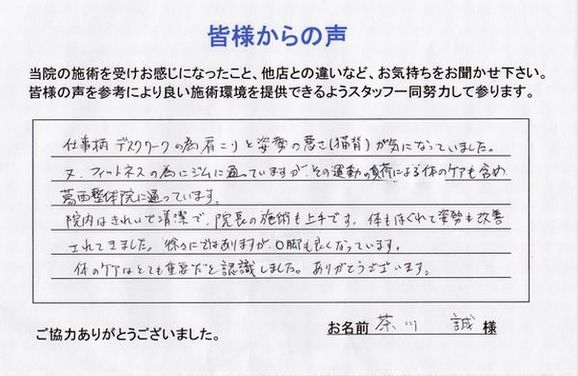 皆様からの声
当院の施術を受けお感じになったこと、他店との違いなど、お気持ちをお聞かせ下さい。
皆様の声を参考により良い施術環境を提供できるようスタッフ一同努力して参ります。
仕事柄 デスクワークの為 肩こりと姿勢の悪さ(猫背)が気になっていました。
又、フィットネスの為にジムに通っていますが、その運動の負荷による体のケアも含め
葛西整体院に通っています。
院内はきれいで清潔で、院長の施術も上手です。体もほぐれて姿勢も改善
されてきました。徐々にではありますが、O脚も良くなっています。
体のケアはとても重要だと認識しました。ありがとうございます。
ご協力ありがとうございました。
お名前 茶川 誠 様